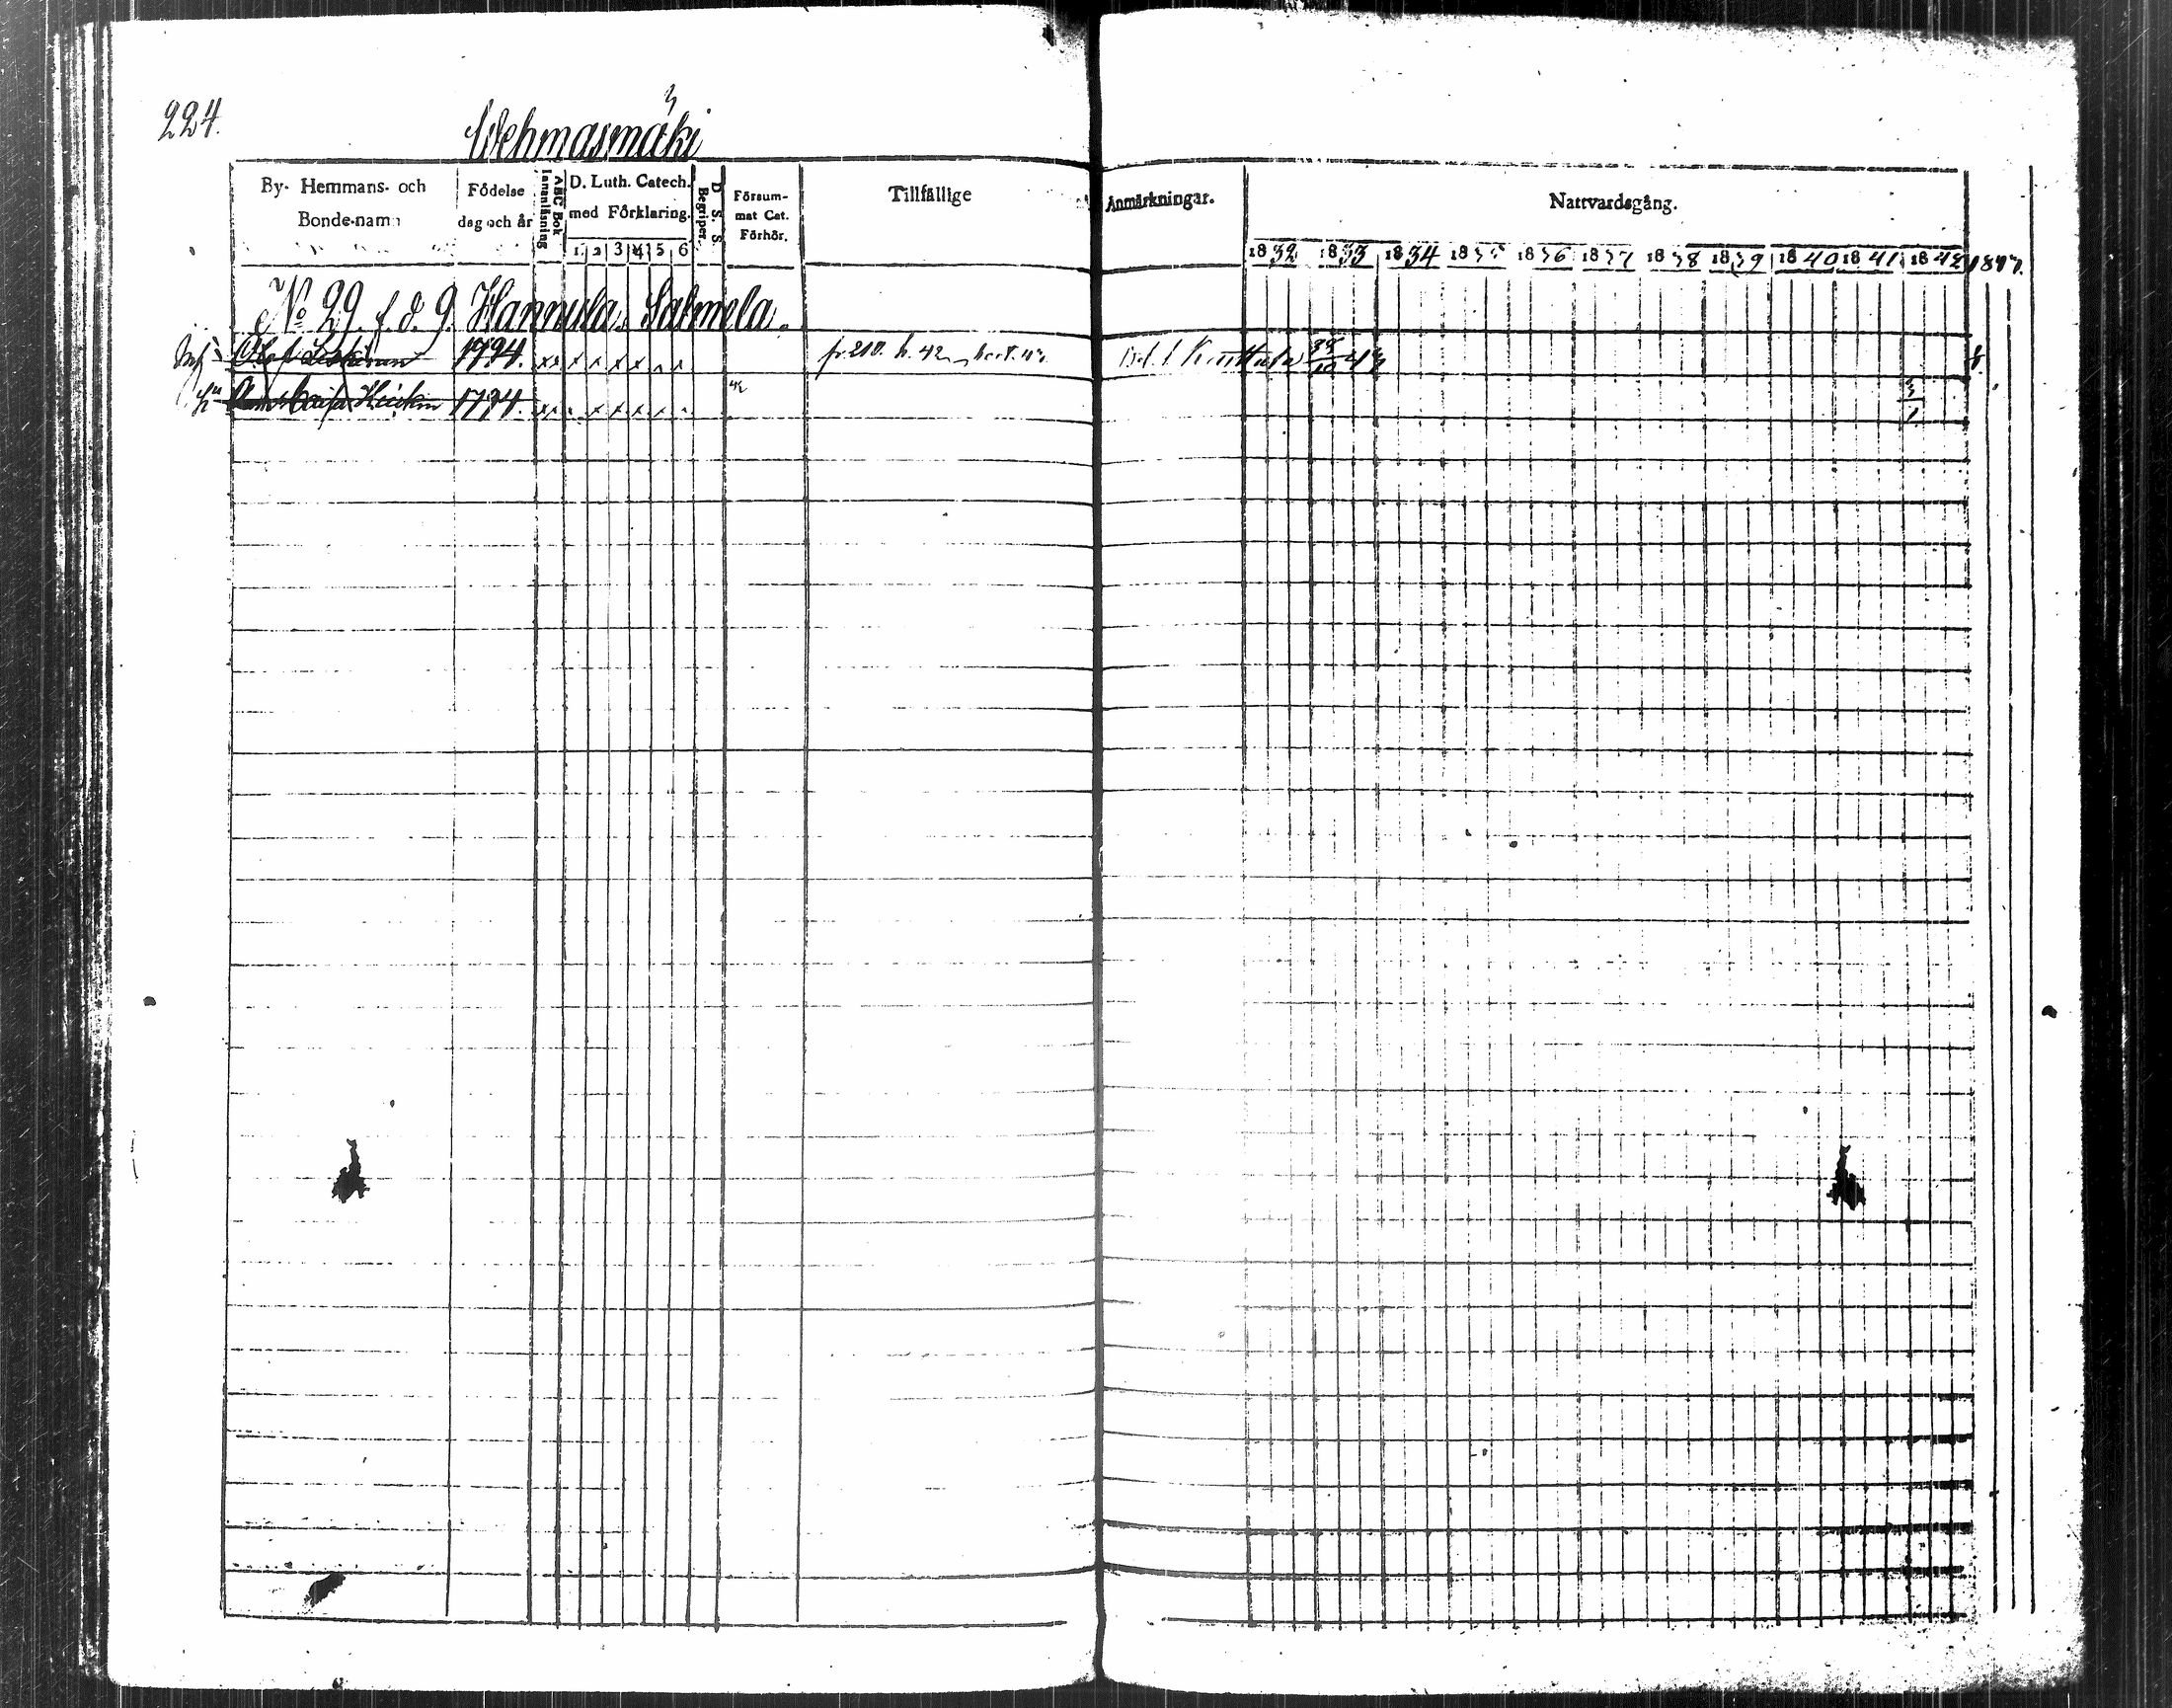 224.
Wehmasmäki
By- Hemmans- och Bonde-namn
Födelse dag och år
ABC Bok Innanläsning
D. Luth. Catech. med Förklaring.
1. 2 3 4 5 6
D. S. S. Begriper.
Försummat Cat. Förhör.
Tillfällige
Anmärkningar.
Nattvardsgång.
1832 1833 1834 1835 1836 1837 1838 1839 1840 1841 1842 1843.
No 29. f. d. 9. Hannula, Salmela.
Olof 1794. x x x x x x fr. 210. h. 42
Caisa 1794. x x x x x 42